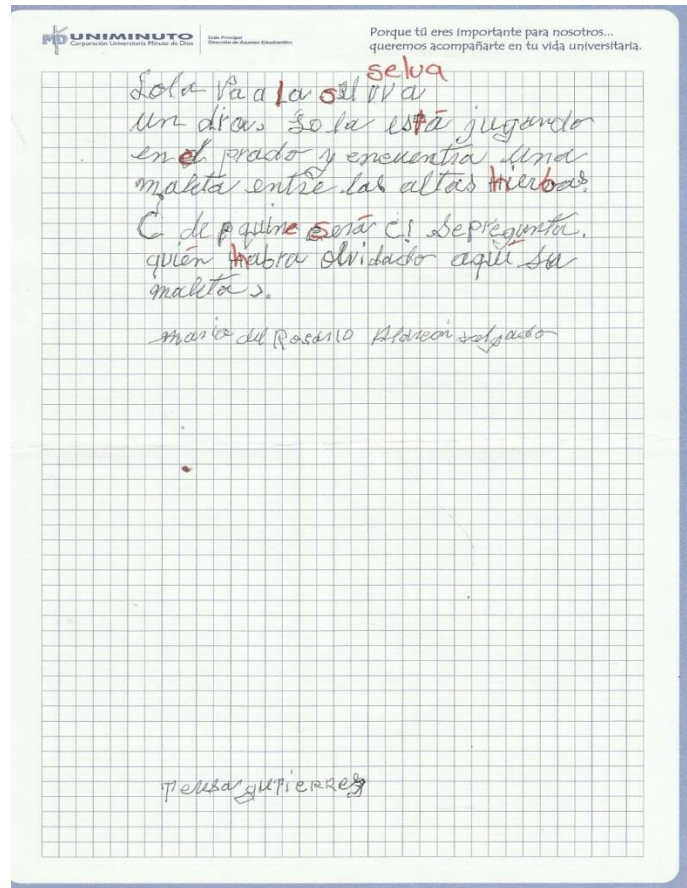 UNIMINUTO
Corporación Universitaria Minuto de Dios
Sede Principal
Dirección de Asuntos Estudiantiles
Porque tú eres importante para nosotros...
queremos acompañarte en tu vida universitaria.
selva
Lola va a La
un dia. Lola está jugando
en el prado y encuentra una
maleta entre las altas hierbas.
C de quine será c! sepregunta.
quién habra olvidado aquí su
maleta
Maria del Rosario Alarcón salgado
Teresa gutierrez